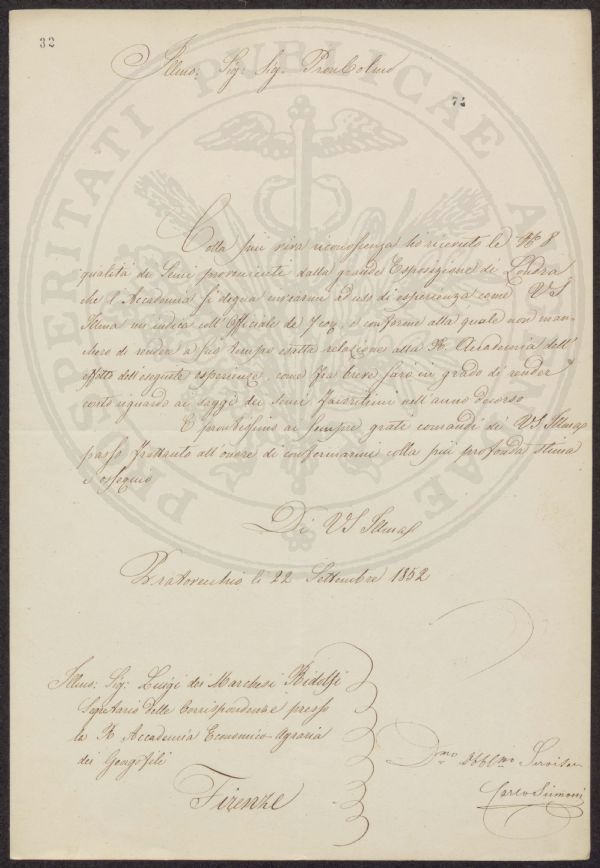 32
Illmo: Sig: Sig. Pron Colmo
74
Colla più viva riconoscenza ho ricevuto le N 8
qualità di Semi proveniente dalla grande Esposizione di Londra
che l'Accademia si degna inviarmi ad uso di esperienza come VS
Illma mi indica coll'Officiale de conforme alla quale non man-
cherò di render a suo tempo esatta relazione alla R. Accademia dell'
effetto dell'eseguita esperienza, come fra breve sarò in grado di render
conto riguardo ai saggi dei Semi favoritimi nell'anno decorso
E prontissimo ai sempre grati comandi di VS Illma
passo frattanto all'onore di confermarmi colla più profonda stima
e ossequio
Di VS Illma
Pratovecchio li 22 Settembre 1852
Illmo: Sig: Luigi dei Marchesi Ridolfi
Segretario delle Corrispondenze presso
la R Accademia Economico-Agraria
dei Georgofili
Firenze
Dmo Obblmo Servitore
Carlo Siemoni
PROSPERITATI PUBLICAE AUGENDAE